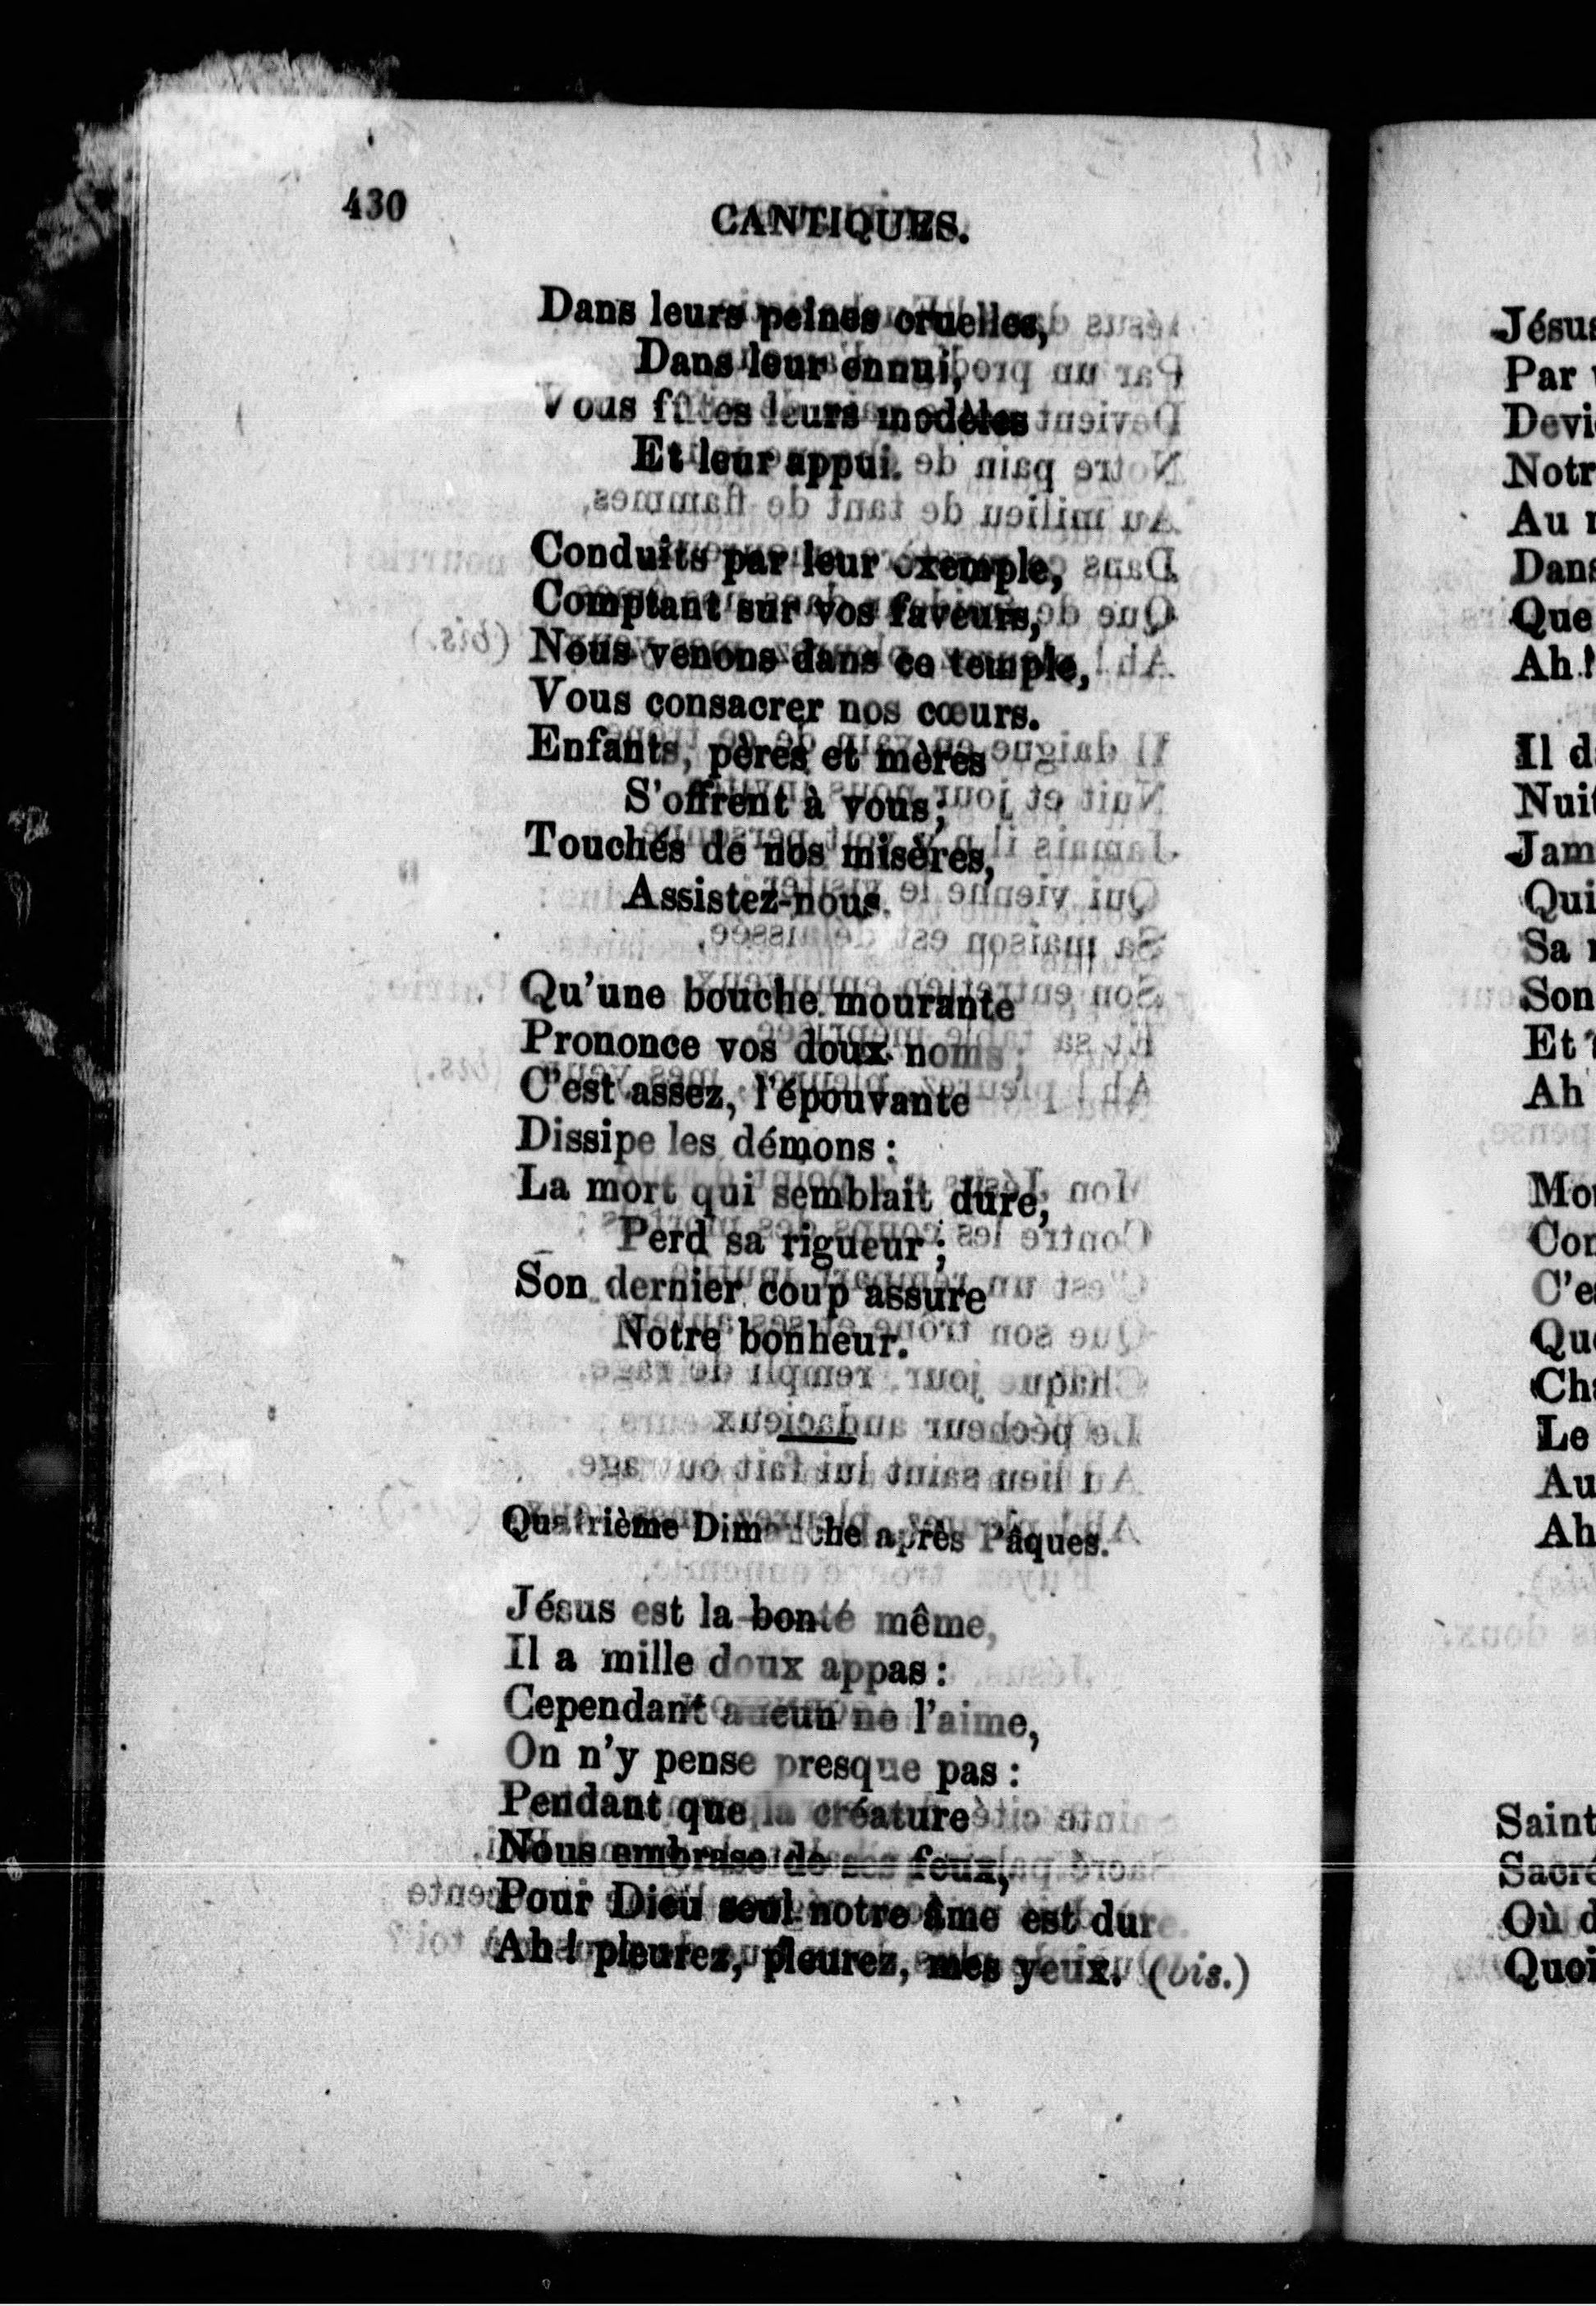 430
CANTIQUES.
Dans leurs peines cruelles,
Dans leur ennui,
Vous fûtes leurs modèles
Et leur appui.
Conduits par leur exemple,
Comptant sur vos faveurs,
Nous venons dans ce temple,
Vous consacrer nos cœurs.
Enfants, pères et mères
S'offrent à vous;
Touchés de nos misères,
Assistez-nous.
Qu'une bouche mourante
Prononce vos doux noms;
C'est assez, l'épouvante
Dissipe les démons :
La mort qui semblait dure,
Perd sa rigueur ;
Son dernier coup assure
Notre bonheur.
Quatrième Dimanche après Pâques.
Jésus est la bonté même,
Il a mille doux appas :
Cependant aucun ne l'aime,
On n'y pense presque pas :
Pendant que la créature
Nous embrase de ses feux,
Pour Dieu seul notre âme est dure.
Ah ! pleurez, pleurez, mes yeux. (bis.)
Jésus
Par
Notr
Au
Dans
Que
Ah !
Il d
Nuit
Jam
Qui
Sa
Son
Et
Ah
Mon
Con
C'es
Que
Cha
Le
Au
Ah
Saint
Sacré
Où d
Quoi